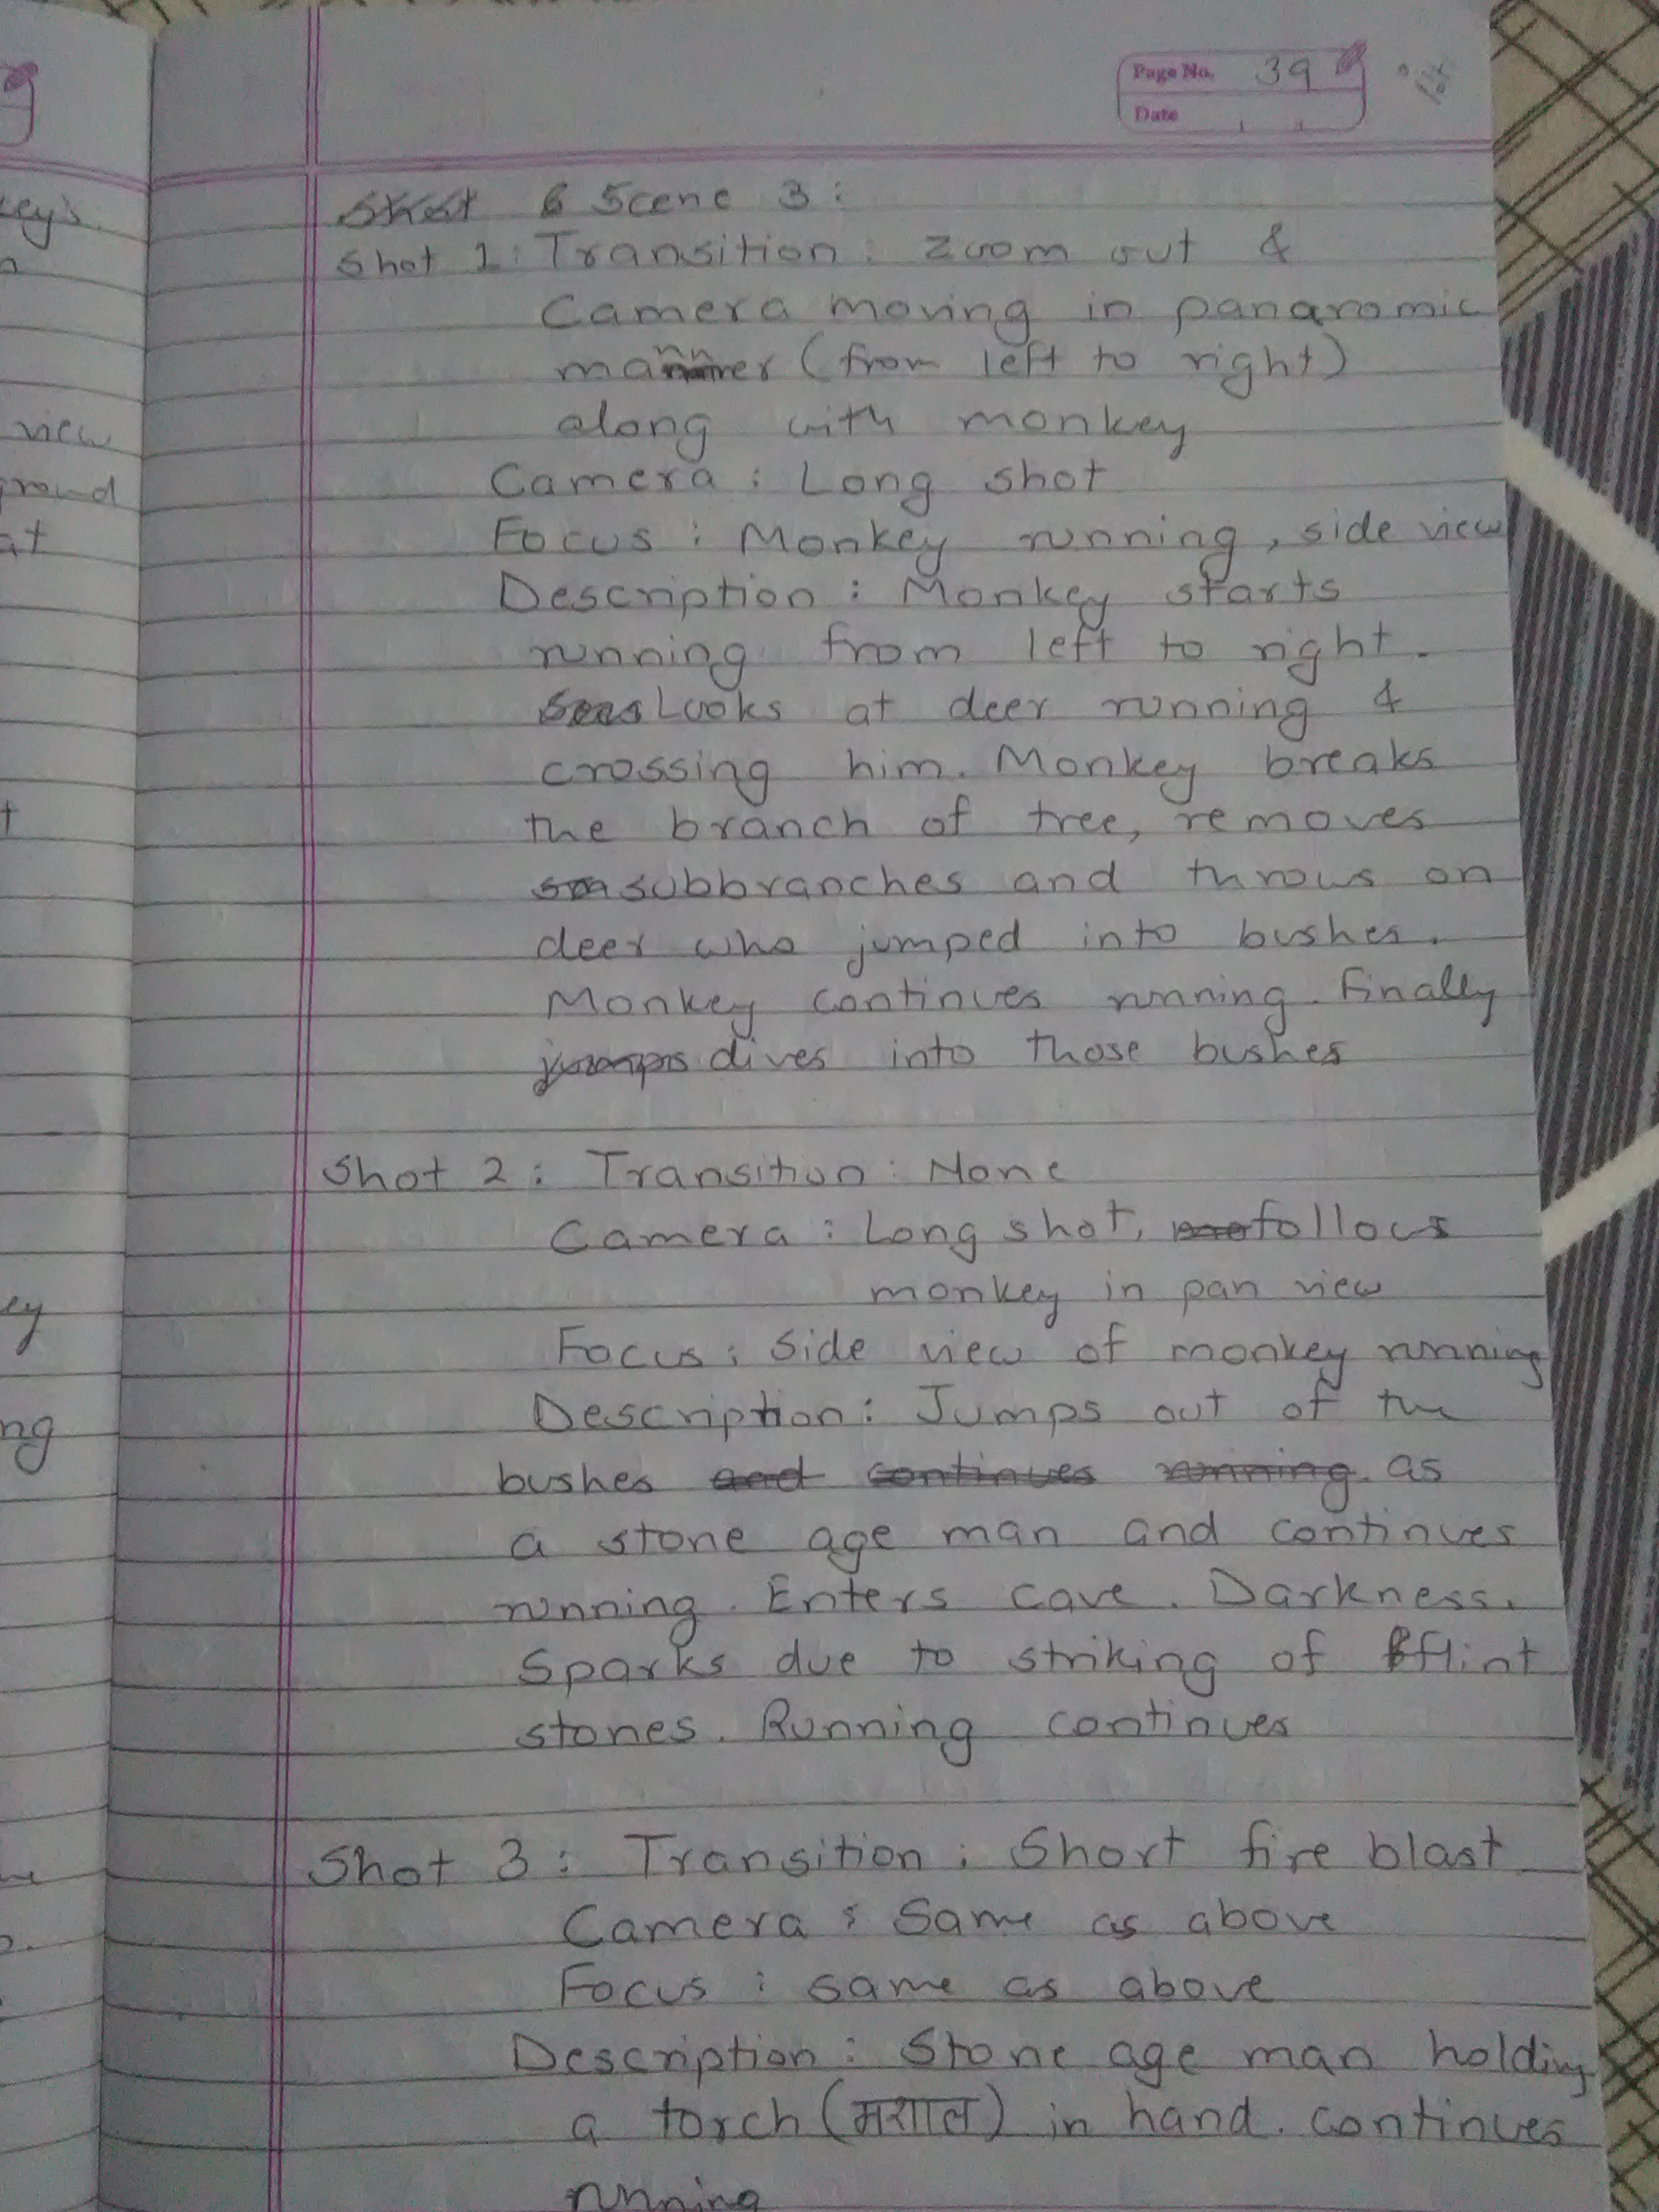 Page No. 39
Date
Scene 3 :
Shot 1 : Transition : Zoom out &
Camera moving in panaromic
manner (from left to right)
along with monkey
Camera : Long shot
Focus : Monkey running, side view
Description : Monkey starts
running from left to right.
Looks at deer running &
crossing him. Monkey breaks
the branch of tree, removes
subbranches and throws on
deer who jumped into bushes.
Monkey continues running. Finally
jumps dives into those bushes
Shot 2 : Transition : None
Camera : Long shot, follows
monkey in pan view
Focus : Side view of monkey running
Description : Jumps out of the
bushes and continues running as
a stone age man and continues
running. Enters cave. Darkness.
Sparks due to striking of flint
stones. Running continues
Shot 3 : Transition : Short fire blast
Camera : Same as above
Focus : same as above
Description : Stone age man holding
a torch (मशाल) in hand. continues
running
view
at
ey
ng